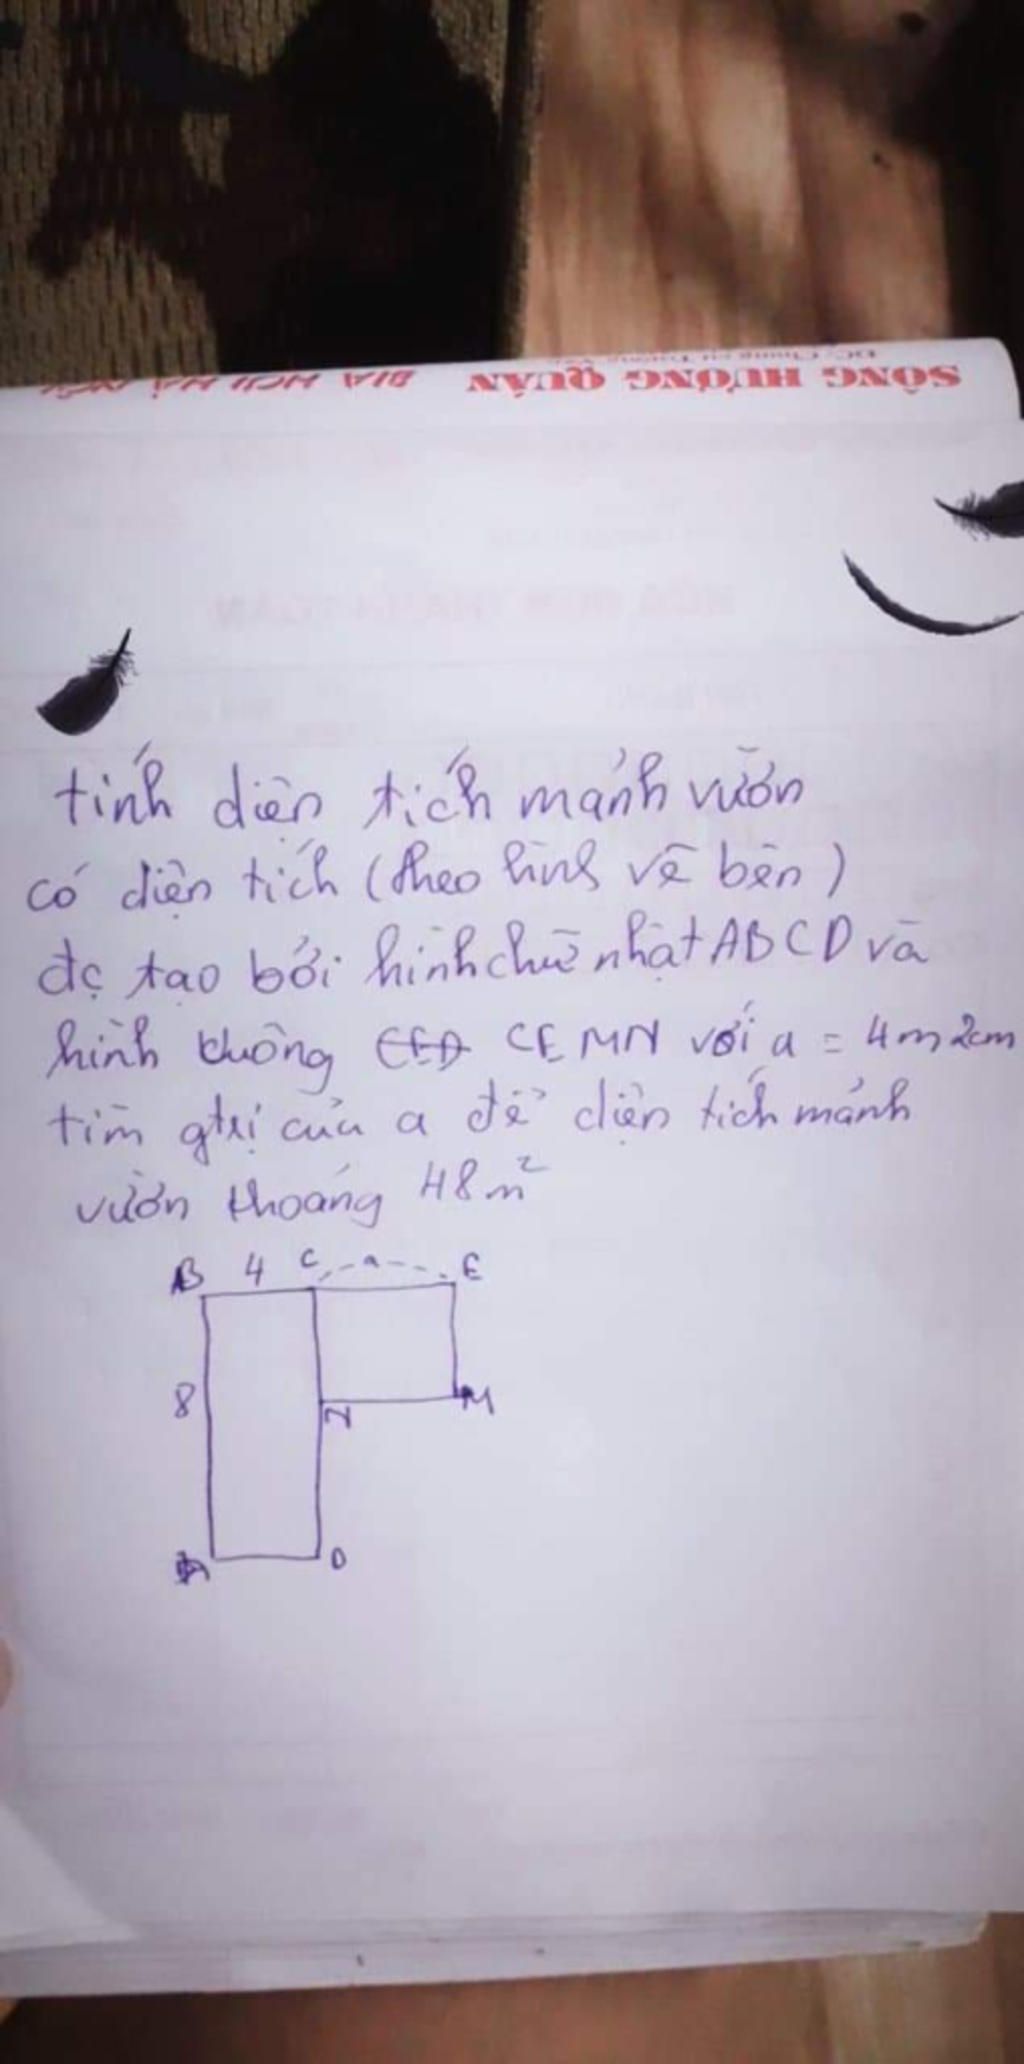 SÔNG HƯƠNG QUÁN BIA HƠI HÀ NỘI
tính diện tích mảnh vườn
có diện tích (theo hình vẽ bên)
đc tạo bởi hình chữ nhật ABCD và
hình vuông CEMN với a = 4m 2cm
tìm gtrị của a để diện tích mảnh
vườn khoảng 48m²
B 4 C a E
8 N M
A D